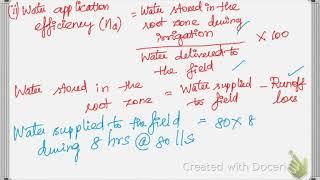 (i) Water application efficiency (ηa) = Water stored in the root zone during irrigation / Water delivered to the field × 100
Water stored in the root zone = Water supplied to field − Runoff loss
Water supplied to the field during 8 hrs @ 80 l/s = 80 × 8
Created with Doceri